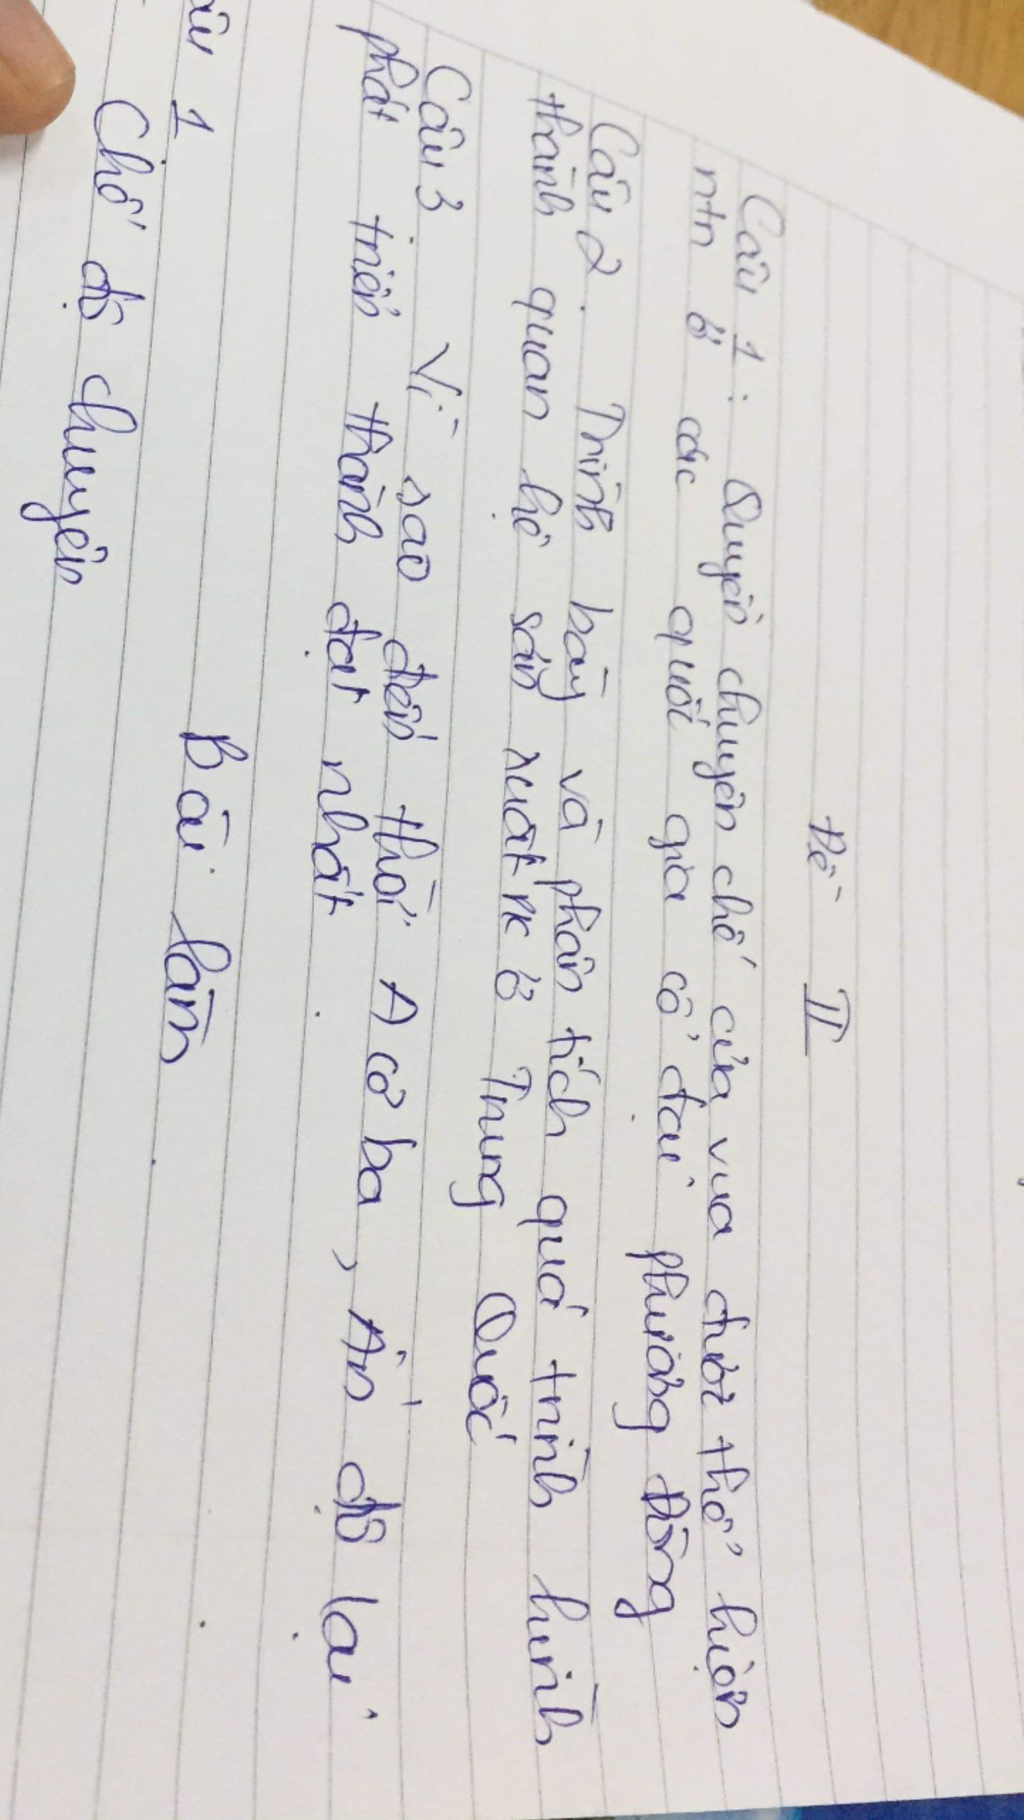 Đề II
Câu 1: Quyền chuyên chế của vua được thể hiện
ntn ở các quốc gia cổ đại phương Đông
Câu 2. Trình bày và phân tích quá trình hình
thành quan hệ sản xuất PK ở Trung Quốc
Câu 3 Vì sao đến thời A cơ ba, Ấn độ lại
phát triển thành đạt nhất.
Bài làm
âu 1
Chế độ chuyên